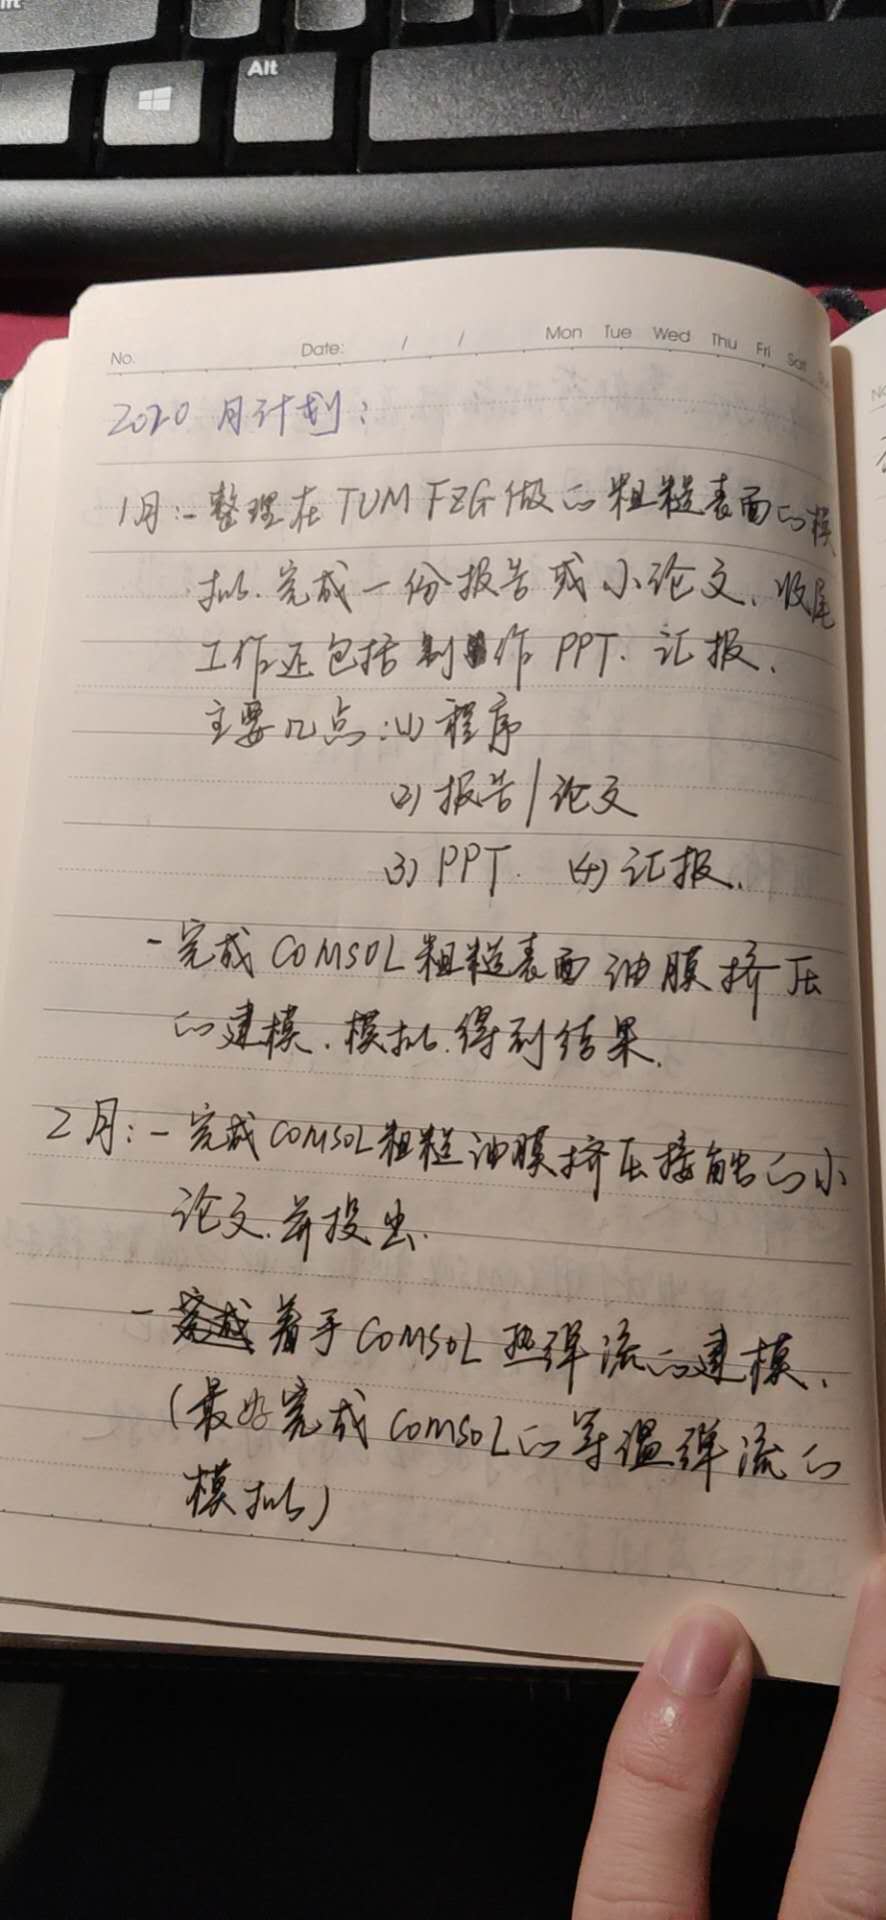 Alt
No.
Date: / /
Mon Tue Wed Thu Fri Sat
2020 月计划:
1月:-整理在TUM FZG做的粗糙表面的模
拟.完成一份报告或小论文.收尾
工作还包括制作PPT.汇报.
主要几点:(1)程序
(2)报告/论文
(3)PPT. (4)汇报.
-完成COMSOL粗糙表面油膜挤压
的建模.模拟.得到结果.
2月:-完成COMSOL粗糙油膜挤压接触的小
论文.并投出.
-完成着手COMSOL热弹流的建模.
(最好完成COMSOL的等温弹流的
模拟)